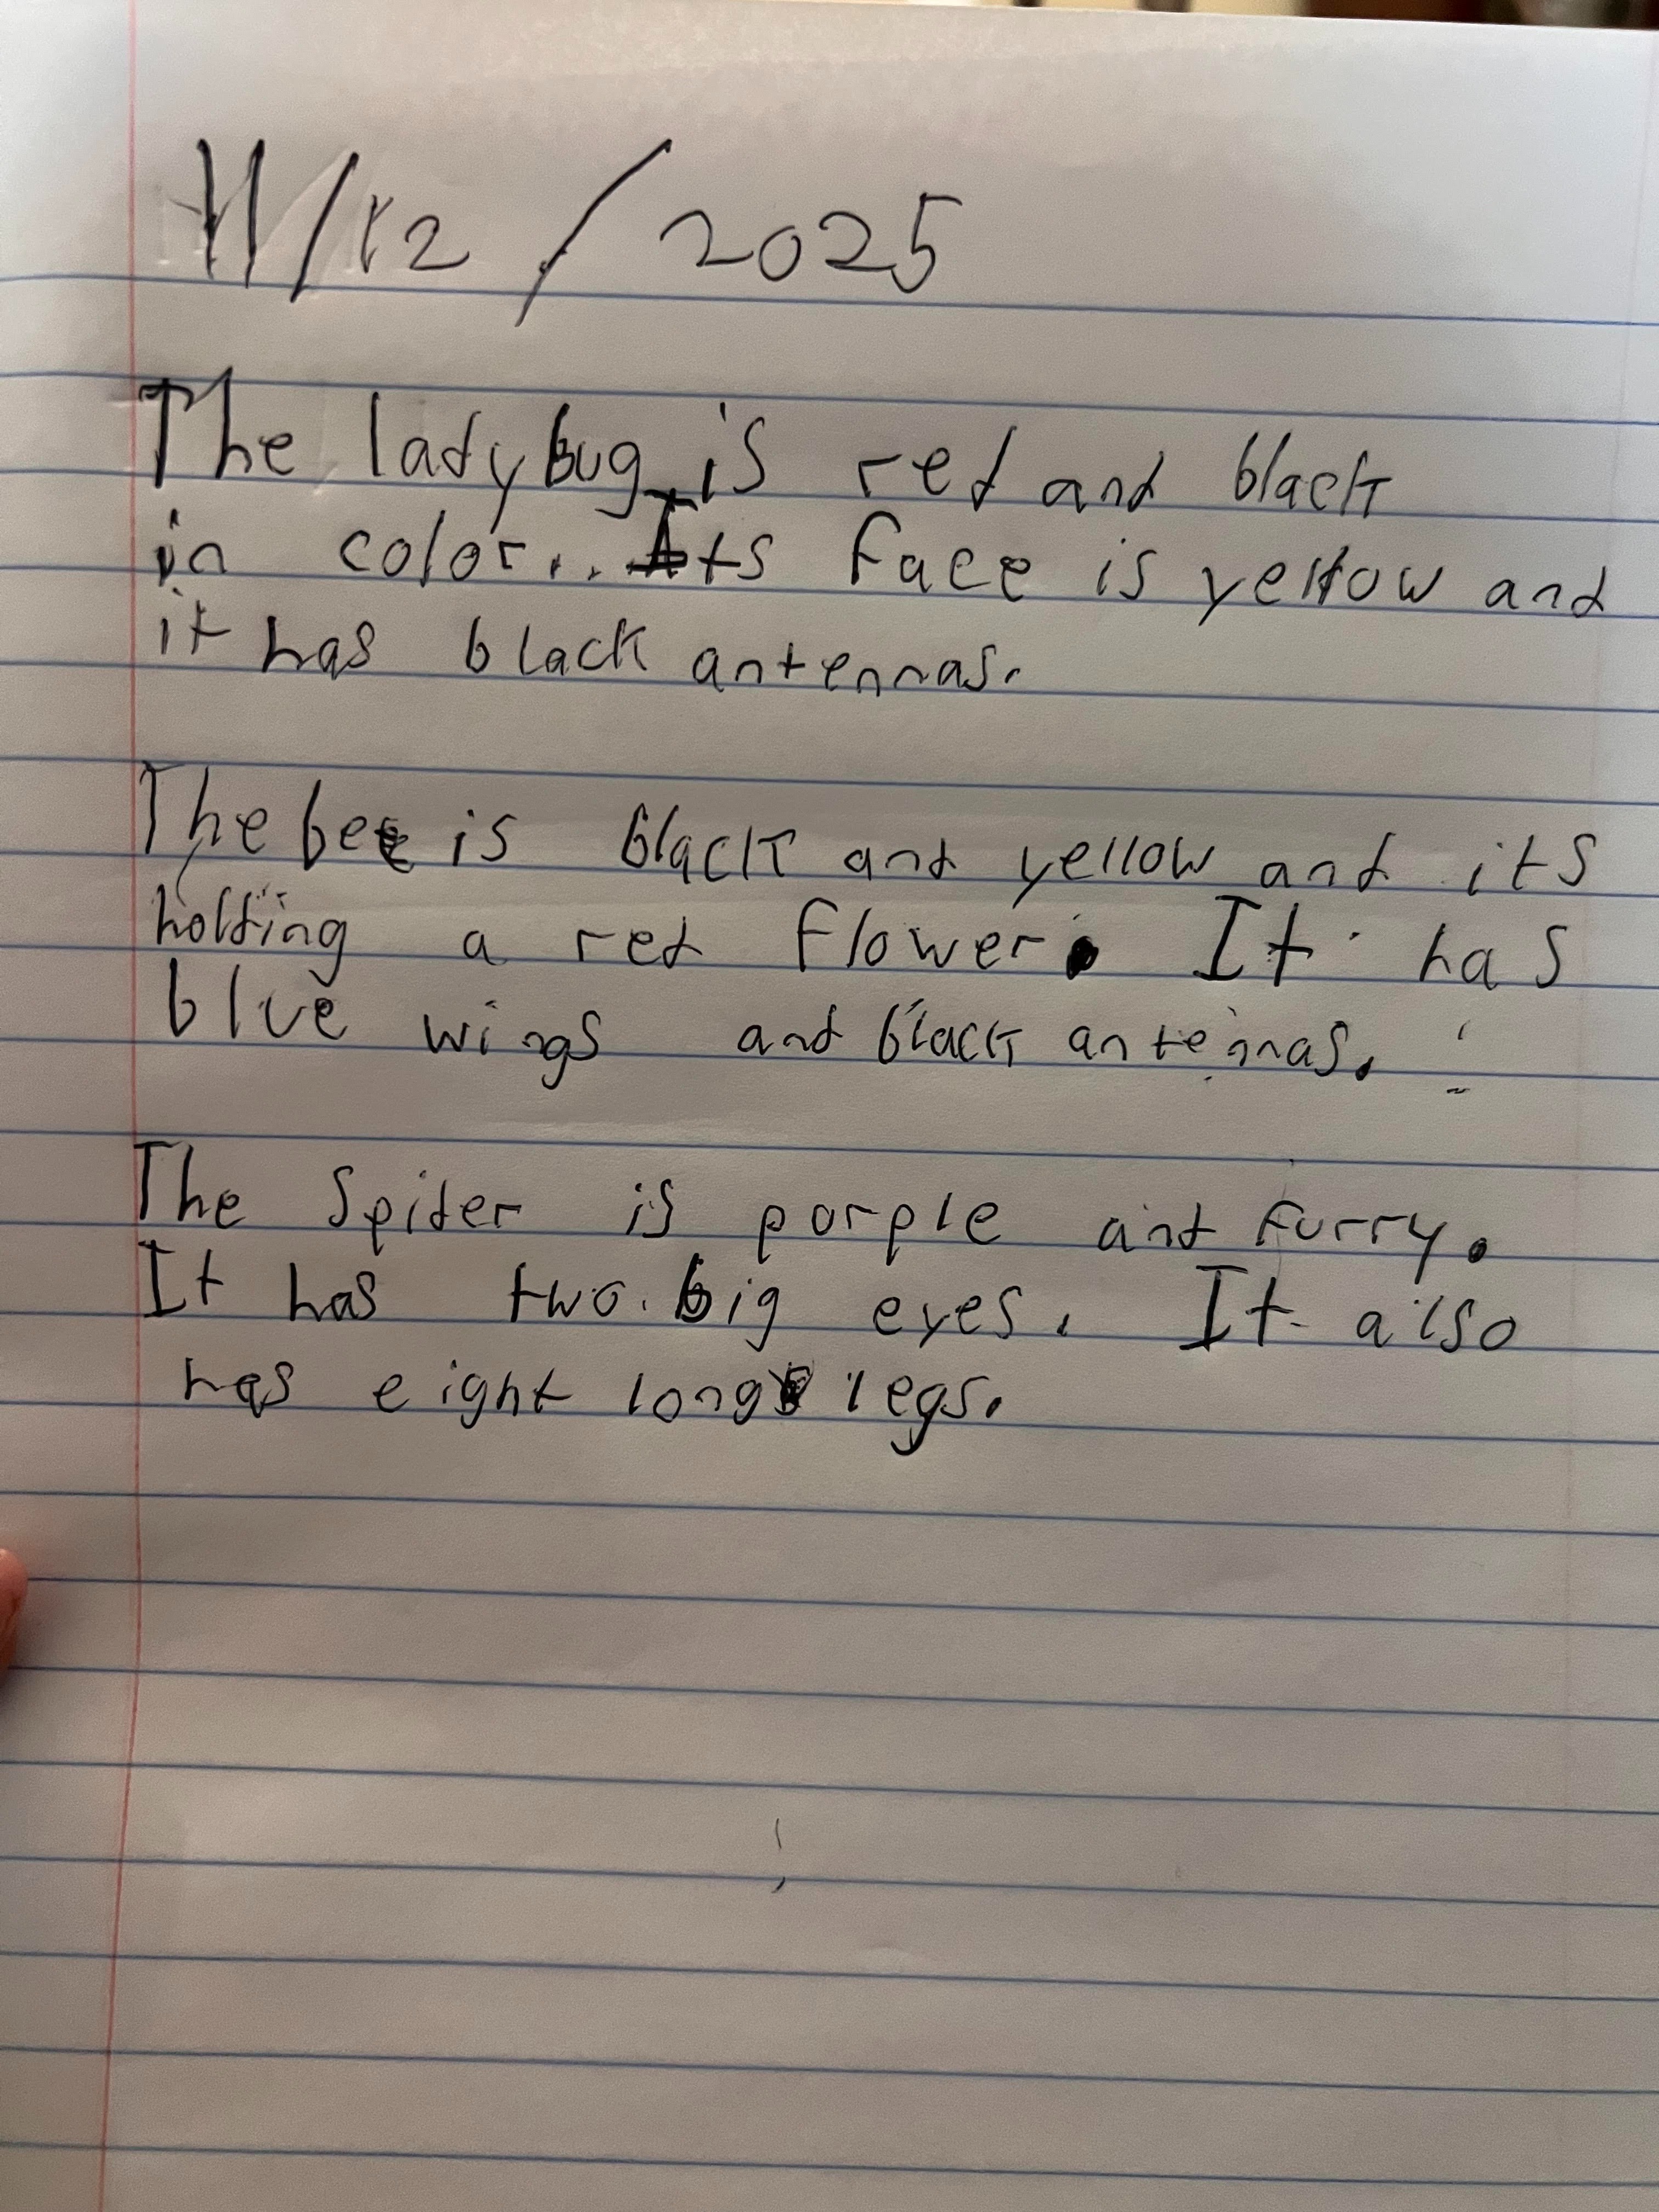 11/12/2025
The ladybug is red and black
in color. Its face is yellow and
it has black antennas.
The bee is black and yellow and its
holding a red flower. It has
blue wings and black antennas.
The Spider is porple and furry.
It has two big eyes. It also
has eight long legs.